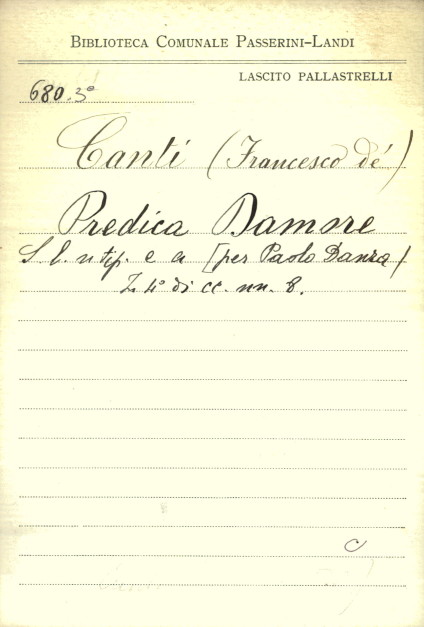 BIBLIOTECA COMUNALE PASSERINI-LANDI
LASCITO PALLASTRELLI
680.3º
Canti (Francesco dé)
Predica Damore
S l. n tip. e a [per Paolo Danza)
4º di cc. nn. 8.
C